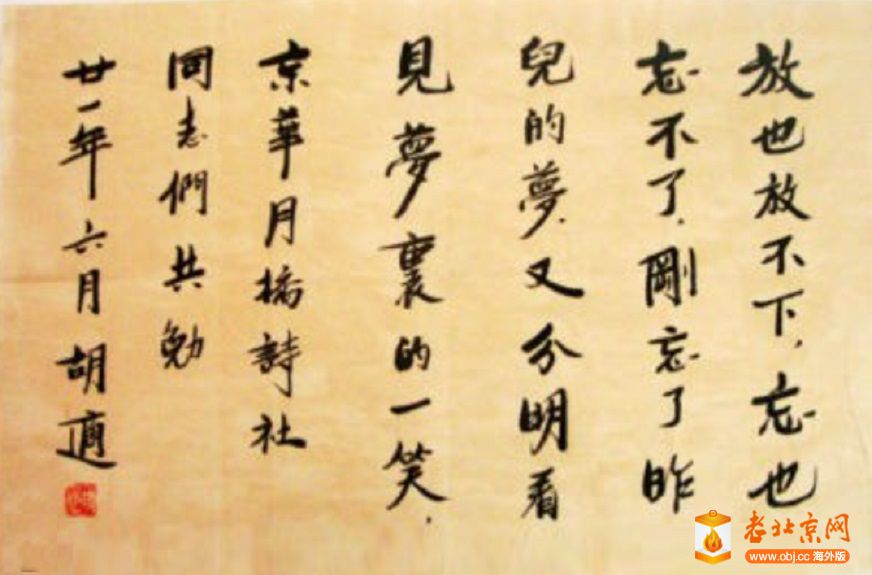 放也放不下，忘也
忘不了，剛忘了昨
兒的夢，又分明看
見夢裏的一笑，
京華月橋詩社
同志們共勉
廿一年六月 胡適
老北京网
www.obj.cc 海外版